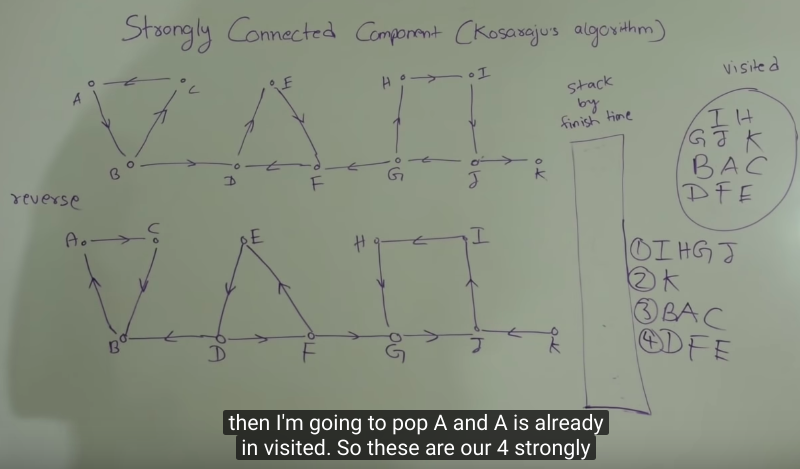 Strongly Connected Component (Kosaraju's algorithm)
A C E H I
B D F G J K
stack
by
finish time
visited
I H
G J K
B A C
D F E
reverse
A C E H I
B D F G J K
① I H G J
② K
③ B A C
④ D F E
then I'm going to pop A and A is already
in visited. So these are our 4 strongly